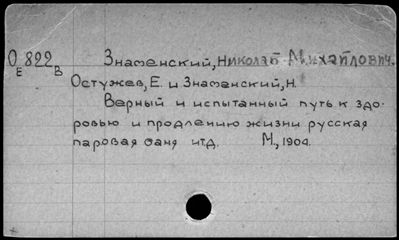 О 822 Знаменский, Николай Михайлович.
Е В
Остужев, Е. и Знаменский, Н.
Верный и испытанный путь к здо-
ровью и продлению жизни русская
паровая баня итд. М., 1904.